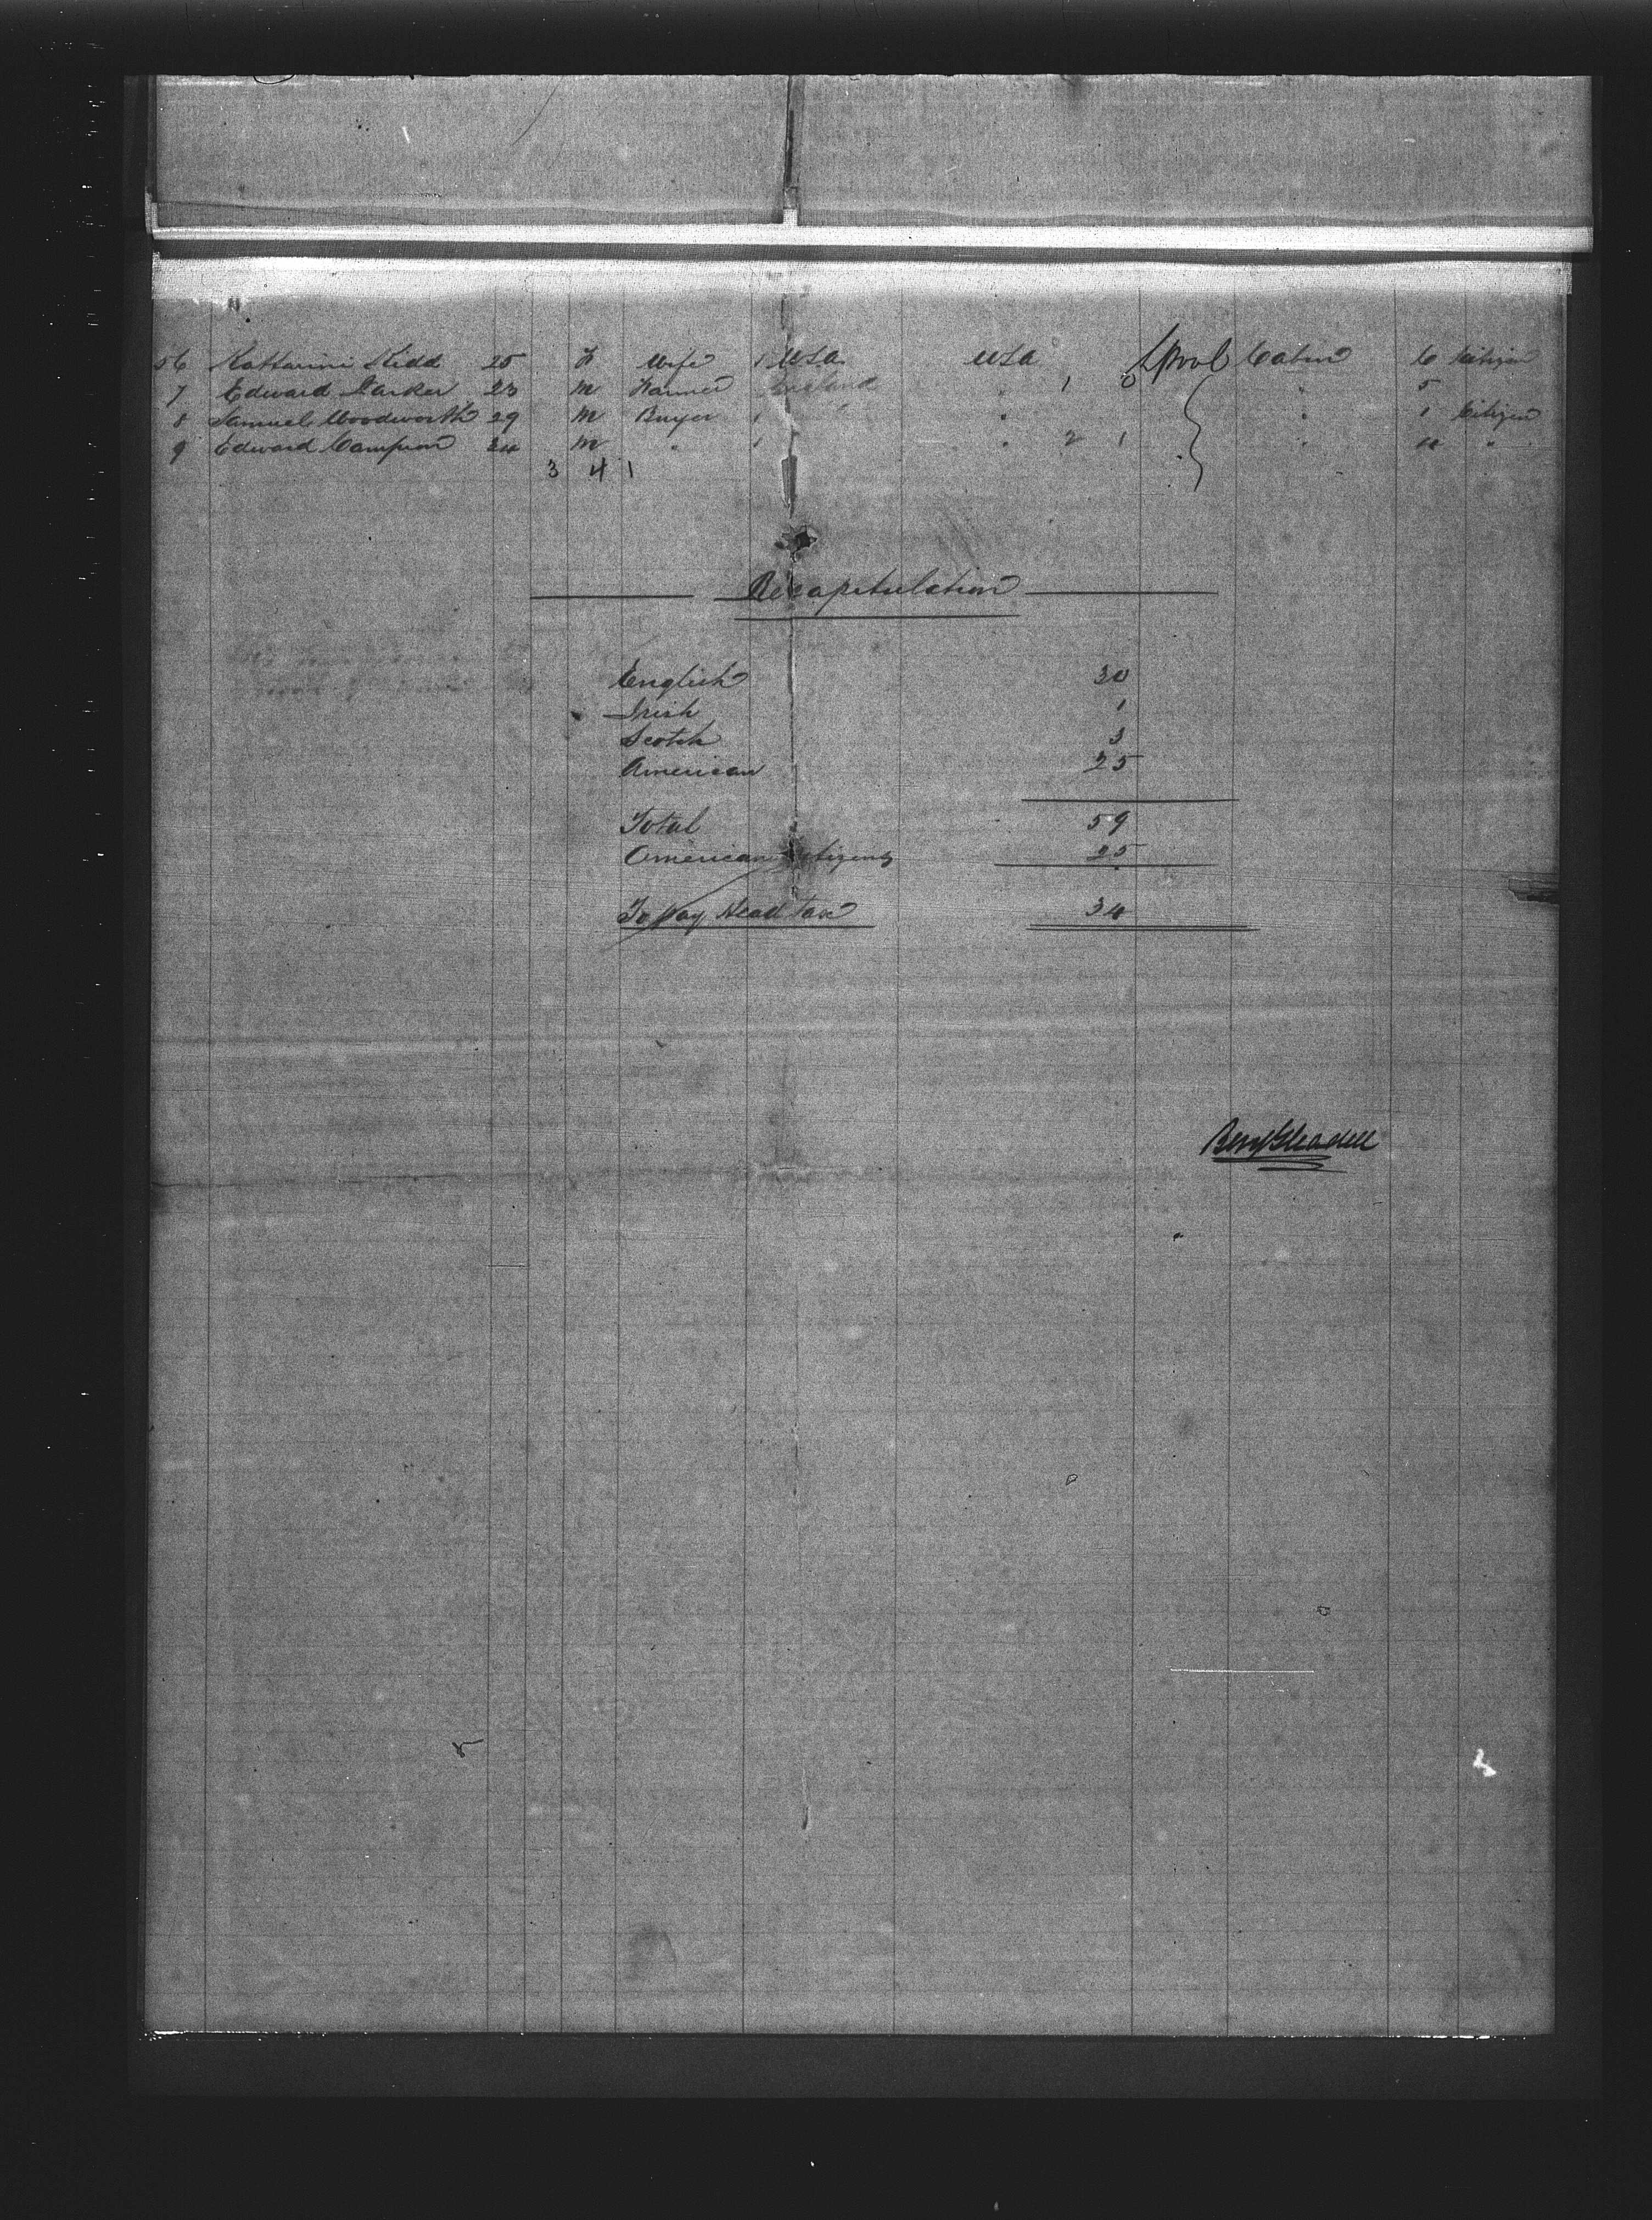 56 Katharine Kidd 25 F Wife 1 USA USA L'Pool Cabin 6 Citizen
7 Edward Parker 23 M Farmer England " 1 0 " 5
8 Samuel Woodworth 29 M Buyer 1 " " " 1 Citizen
9 Edward Campion 24 M " 1 " 2 1 " 4 "
3 4 1
Recapitulation
English 30
Irish 1
Scotch 3
American 25
Total 59
American Citizens 25
To pay Head Tax 34
Benj Gleadell